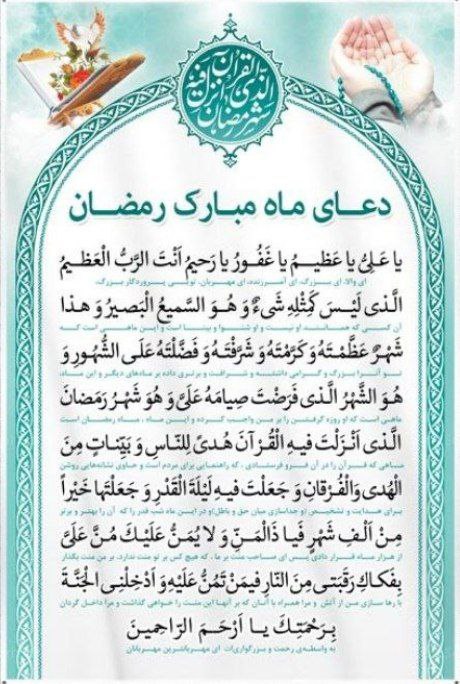 شهر رمضان الذی انزل فیه القرآن
دعـای مـاه مبـارک رمضـان
یا عَلِیُّ یا عَظیـمُ یا غَفُورُ یا رَحیمُ اَنْتَ الرَّبُّ الْعَظیمُ
ای والا، ای بـزرگ، ای آمرزنده، ای مهربـان، تویـی پـروردگار بزرگ،
الَّذی لَیْسَ کَمِثْلِهِ شَیءٌ وَ هُوَ السَّمیعُ الْبَصیرُ وَ هذا
آن کسی که همـاننـد او نیست و او شنـوا و بینـا است و ایـن ماهی است کـه
شَهْرٌ عَظَّمْتَهُ وَ کَرَّمْتَهُ وَ شَرَّفْتَهُ وَ فَضَّلْتَهُ عَلَی الشُّهُورِ وَ
تـو آنـرا بـزرگ و گرامی داشتـه و شـرافت و برتری داده بر ماه‌های دیگر و این ماه،
هُوَ الشَّهْرُ الَّذی فَرَضْتَ صِیامَهُ عَلَیَّ وَ هُوَ شَهْرُ رَمَضانَ
ماهی است که او روزه گرفتـن را بر مـن واجـب کـرده و ایـن مـاه ، مـاه رمضـان است
الَّذی اَنْزَلْتَ فیهِ الْقُرْآنَ هُدیً لِلنّاسِ وَ بَیِّناتٍ مِنَ
ماهی که قـرآن را در آن فـرو فرستـادی ، که راهنمایی برای مردم است و حاوی نشانه‌های روشن
الْهُدی وَالْفُرْقانِ وَ جَعَلْتَ فیهِ لَیْلَةَ الْقَدْرِ وَ جَعَلْتَها خَیْراً
برای هدایت و تشخیـص (جداسازی میان حق و باطل) و در ایـن مـاه شب قدر را که آن را بهتـر و برتر
مِنْ اَلْفِ شَهْرٍ فَیا ذَاالْمَنِّ وَ لا یُمَنُّ عَلَیْكَ مُنَّ عَلَیَّ
از هزار مـاه قـرار دادی پـس ای صاحب منت بر ما، که هیچ کس بر تو منت ندارد، بر من منت بگذار
بِفَکاكِ رَقَبَتی مِنَ النّارِ فیمَنْ تَمُنُّ عَلَیْهِ وَ اَدْخِلْنِی الْجَنَّةَ
با رها سازی من از آتش و مرا همراه با آنـان که بر آنهـا ایـن منـت را خـواهی گذاشت و مرا داخل گردان
بِرَحْمَتِكَ یـا اَرْحَمَ الرّاحِمینَ
به واسطه‌ی رحمت و بزرگواری‌ات ای مهربانترین مهربانان